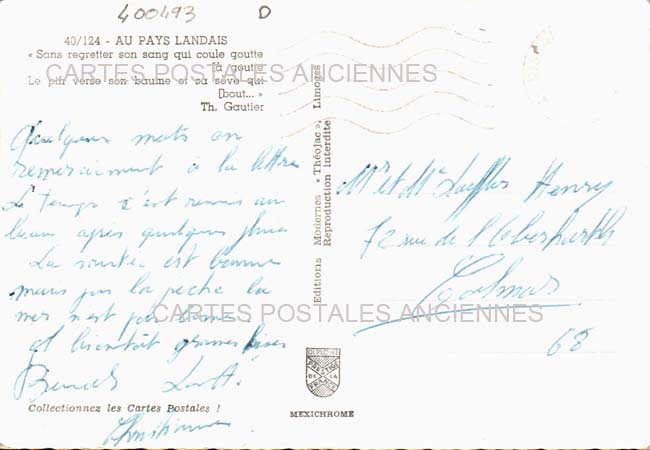 400493 D
40/124 - AU PAYS LANDAIS
« Sans regretter son sang qui coule goutte
[à goutte
Le pin verse son baume et sa sève qui
[bout... »
Th. Gautier
CARTES POSTALES ANCIENNES
Quelques mots en
remerciement à la lettre
Le Temps s'est remis au
beau après quelques pluies
La santée est bonne
mais pas la peche la
mer n'est pas bonne
et bientôt grosses bises
Christiane
Collectionnez les Cartes Postales !
Editions Modernes « Théojac », Limoges
Reproduction Interdite
DIPLOME
PRESTIGE
DE LA
FRANCE
MEXICHROME
Mr et Me Henry
72 rue de l'
Colmar
68
CARTES POSTALES ANCIENNES